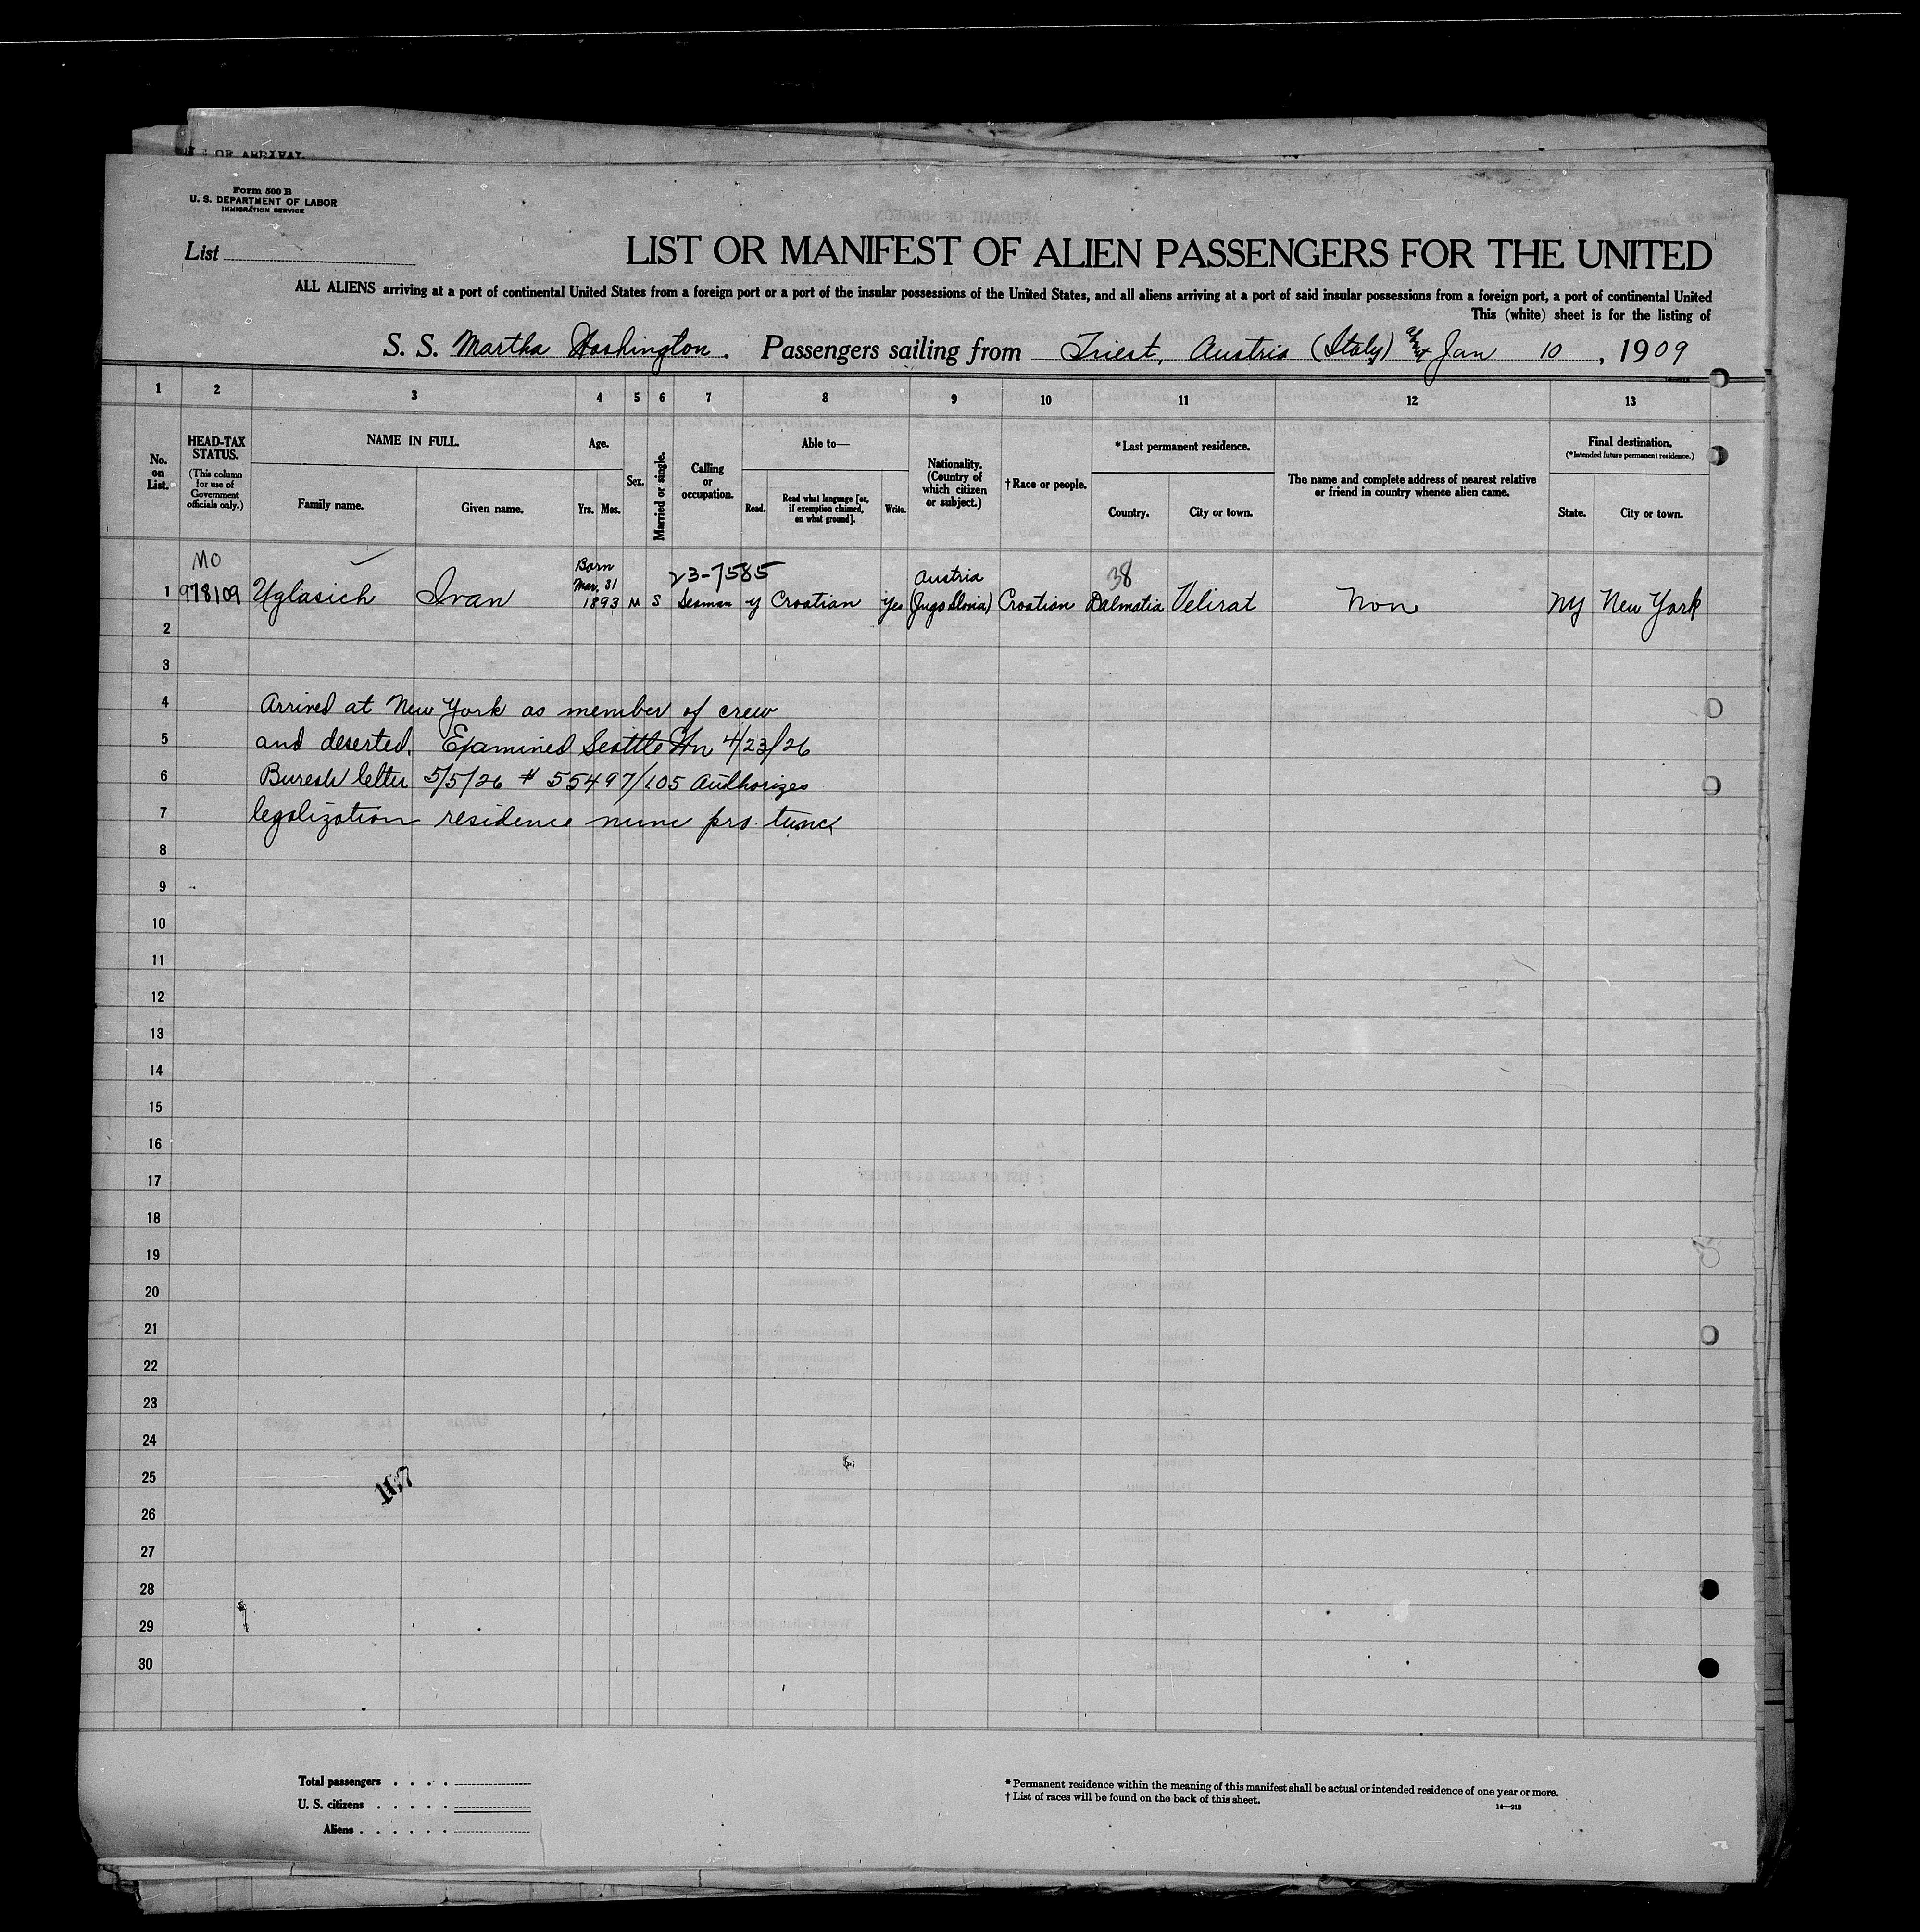 OF ARRIVAL
Form 500 B
U. S. DEPARTMENT OF LABOR
IMMIGRATION SERVICE
List
LIST OR MANIFEST OF ALIEN PASSENGERS FOR THE UNITED
ALL ALIENS arriving at a port of continental United States from a foreign port or a port of the insular possessions of the United States, and all aliens arriving at a port of said insular possessions from a foreign port, a port of continental United
This (white) sheet is for the listing of
S. S. Martha Washington. Passengers sailing from Triest, Austria (Italy) Jan 10, 1909
1 2 3 4 5 6 7 8 9 10 11 12 13
No. on List.
HEAD-TAX STATUS.
(This column for use of Government officials only.)
NAME IN FULL.
Family name.
Given name.
Age.
Yrs. Mos.
Sex.
Married or single.
Calling or occupation.
Able to—
Read.
Read what language [or, if exemption claimed, on what ground].
Write.
Nationality. (Country of which citizen or subject.)
†Race or people.
*Last permanent residence.
Country.
City or town.
The name and complete address of nearest relative or friend in country whence alien came.
Final destination.
(*Intended future permanent residence.)
State.
City or town.
MO
Born Mar. 31
23-7585
Austria
38
1 978109 Uglasich Ivan 1893 M S Seaman y Croatian Yes (Jugo Slovia) Croatian Dalmatia Velirat Non NY New York
2
3
4 Arrived at New York as member of crew
5 and deserted. Examined Seattle Wn 4/23/26
6 Bureau letter 5/5/26 # 55497/105 Authorizes
7 legalization residence nunc pro tunc
8
9
10
11
12
13
14
15
16
17
18
19
20
21
22
23
24
25
26
27
28
29
30
117
Total passengers . . . .
U. S. citizens . . . . .
Aliens . . . . . .
* Permanent residence within the meaning of this manifest shall be actual or intended residence of one year or more.
† List of races will be found on the back of this sheet.
14—213